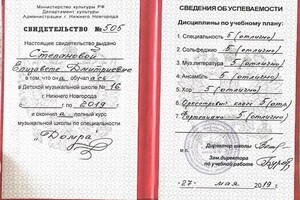 Министерство культуры РФ
Департамент культуры
Администрации г. Нижнего Новгорода
СВИДЕТЕЛЬСТВО № 505
Настоящее свидетельство выдано
Степановой
Елизавете Дмитриевне
в том, что она обучалась
в Детской музыкальной школе № 16
г. Нижнего Новгорода
по 2019 г.
и окончила полный курс
музыкальной школы по специальности
"Домра"
СВЕДЕНИЯ ОБ УСПЕВАЕМОСТИ
Дисциплины по учебному плану:
1. Специальность 5 (отлично)
2. Сольфеджио 5 (отлично)
3. Муз.литература 5 (отлично)
4. Ансамбль 5 (отлично)
5. Хор 5 (отлично)
6. Оркестровый класс 5 (отл)
7. Фортепиано 5 (отлично)
Директор школы
Зам.директора
по учебной работе
"27" мая 2019 г.